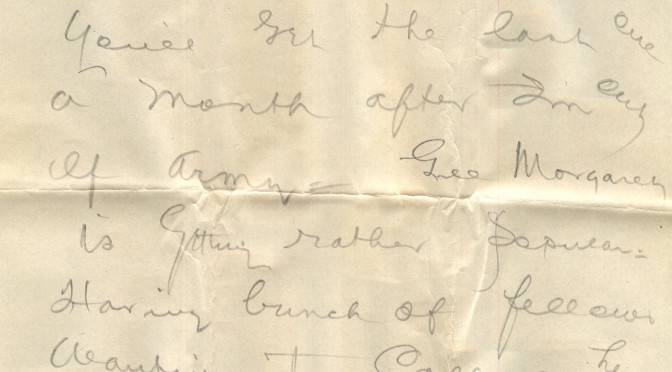 You'll Get the last one
a month after I'm out
of Army = Gee Margaret
is Getting rather Popular =
Having bunch of fellows
Wanting To Call